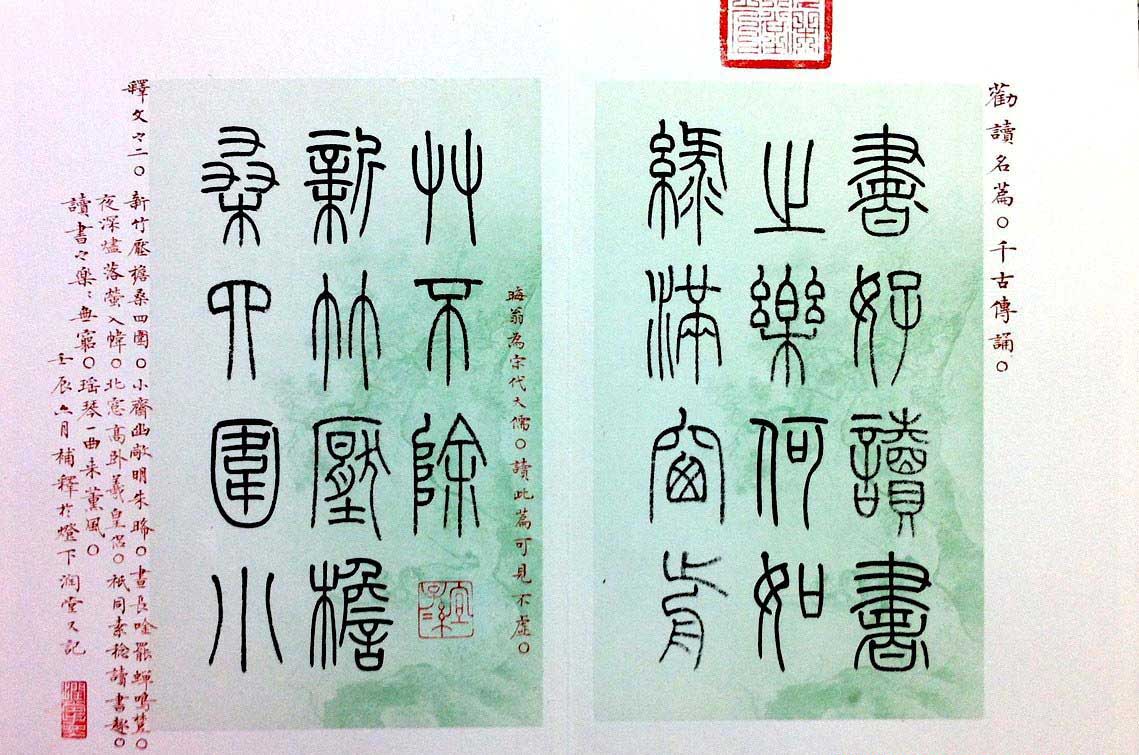 勸讀名篇○千古傳誦○
書好讀書
之樂何如
綠滿窗前
晦翁為宋代大儒○讀此篇可見不虛○
艸不除
新竹壓檐
桑四圍小
釋文之二○新竹壓檐桑四圍○小齋幽敞明朱曦○晝長吟罷蟬鳴樹○
夜深燼落螢入幃○北窓高卧羲皇侶○祇同素稔讀書趣○
讀書之樂〻無窮○瑤琴一曲来薰風○
壬辰六月補釋於燈下潤堂又記